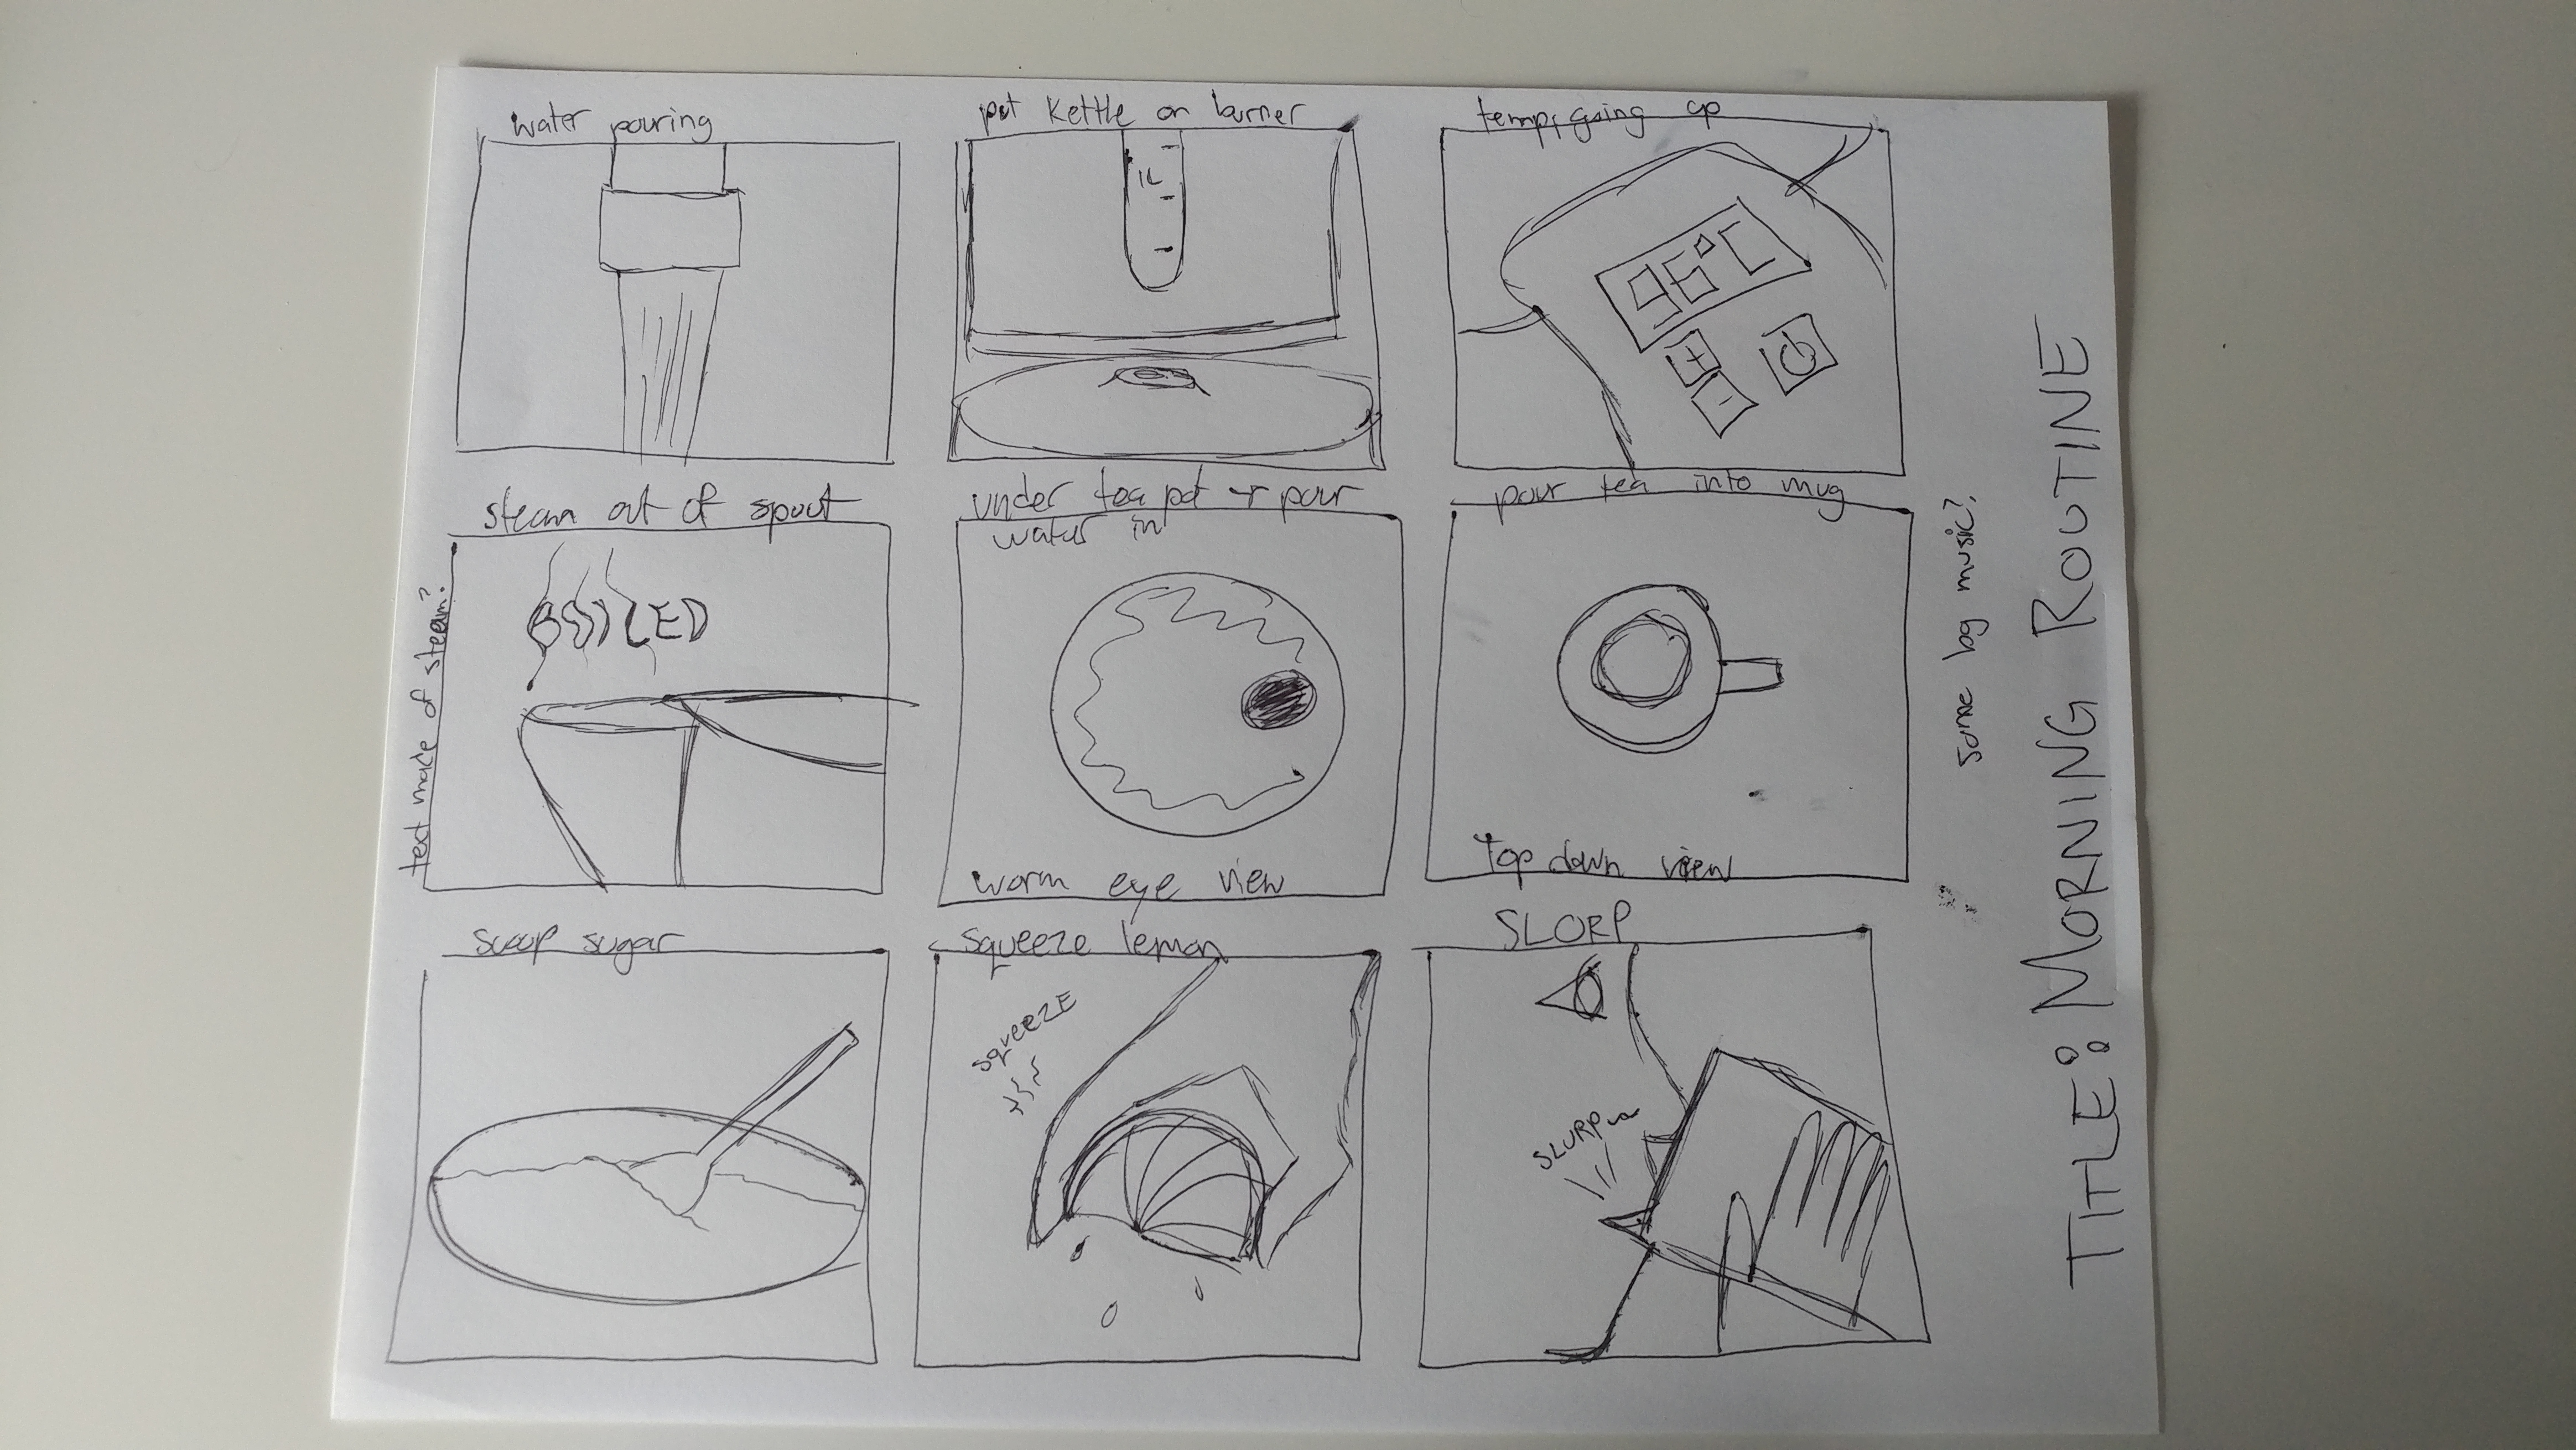 water pouring
put kettle on burner
1L
temp, going up
96°C
+
-
steam out of spout
BOILED
text made of steam?
under tea pot + pour
water in
worm eye view
pour tea into mug
top down view
scoop sugar
squeeze lemon
SQUEEZE
SLORP
SLURP
some bg music?
TITLE: MORNING ROUTINE